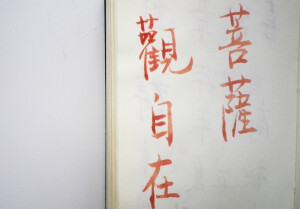 觀自在
菩薩